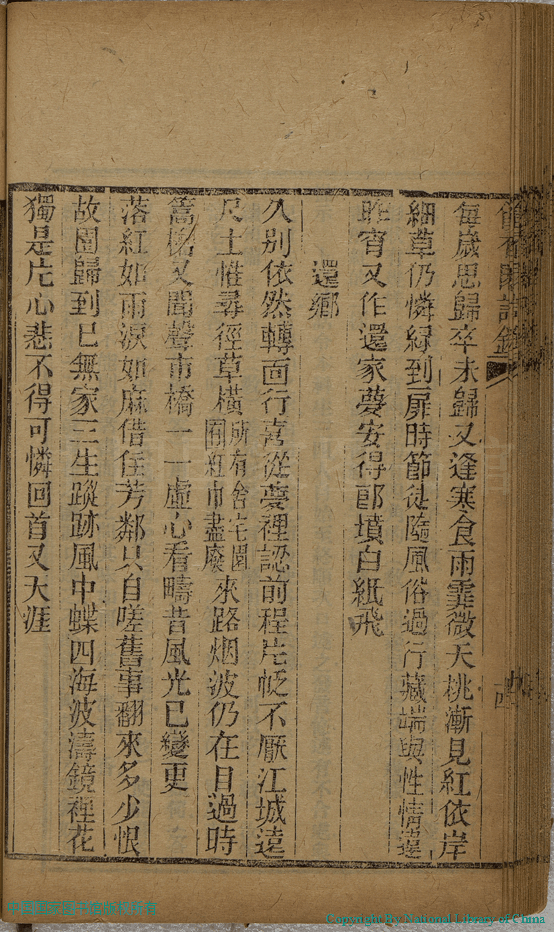 詩鈔
每歲思歸卒未歸又逢寒食雨霏微夭桃漸見紅依岸
細草仍憐綠到扉時節徒隨風俗過行藏端與性情違
昨宵又作還家夢安得郎墳白紙飛
還鄉
久別依然轉面行喜從夢裡認前程片帆不厭江城遠
尺土惟尋徑草橫所有舍宅園圃紅巾盡廢來路烟波仍在目過時
篙櫓又聞聲市橋一一虛心看疇昔風光已變更
落紅如雨淚如麻借住芳鄰只自嗟舊事翻來多少恨
故園歸到已無家三生蹤跡風中蝶四海波濤鏡裡花
獨是片心悲不得可憐回首又天涯
Copyright By National Library of China